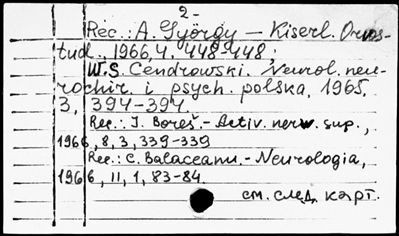 2-
Rec.: A. György — Kiserl. Orvos-
tud., 1966, 4, 448-448;
W.S. Cendrowski. Neurol. neu-
rochir. i psych. polska, 1965,
3, 394-394.
Rec.: J. Bureš. - Activ. nerw. sup.,
1966, 8, 3, 339-339
Rec.: C. Balaceanu. - Neurologia,
1966, 11, 1, 83-84.
см. след. карт.